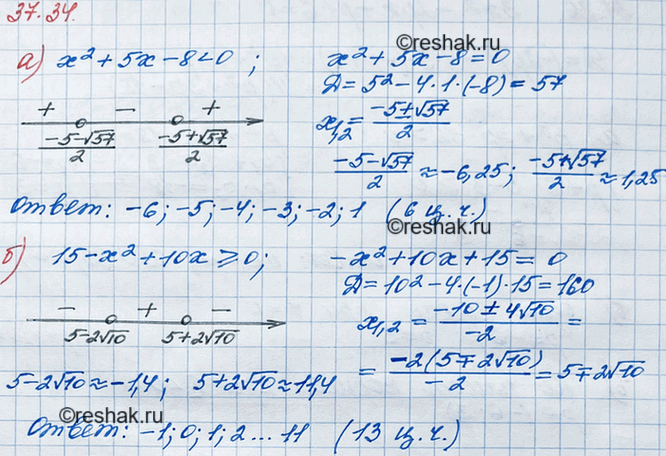 37.34.
©reshak.ru
а) x² + 5x - 8 < 0 ; x² + 5x - 8 = 0
D = 5² - 4·1·(-8) = 57
+ - +
(-5-√57)/2 (-5+√57)/2
x₁,₂ = (-5±√57)/2
(-5-√57)/2 ≈ -6,25; (-5+√57)/2 ≈ 1,25
Ответ: -6; -5; -4; -3; -2; 1 (6 ц.ч.)
б) 15 - x² + 10x ⩾ 0; -x² + 10x + 15 = 0
D = 10² - 4·(-1)·15 = 160
- + -
5-2√10 5+2√10
x₁,₂ = (-10 ± 4√10)/-2 =
= -2(5∓2√10)/-2 = 5∓2√10
5-2√10 ≈ -1,4; 5+2√10 ≈ 11,4
Ответ: -1; 0; 1; 2 ... 11 (13 ц.ч.)
©reshak.ru